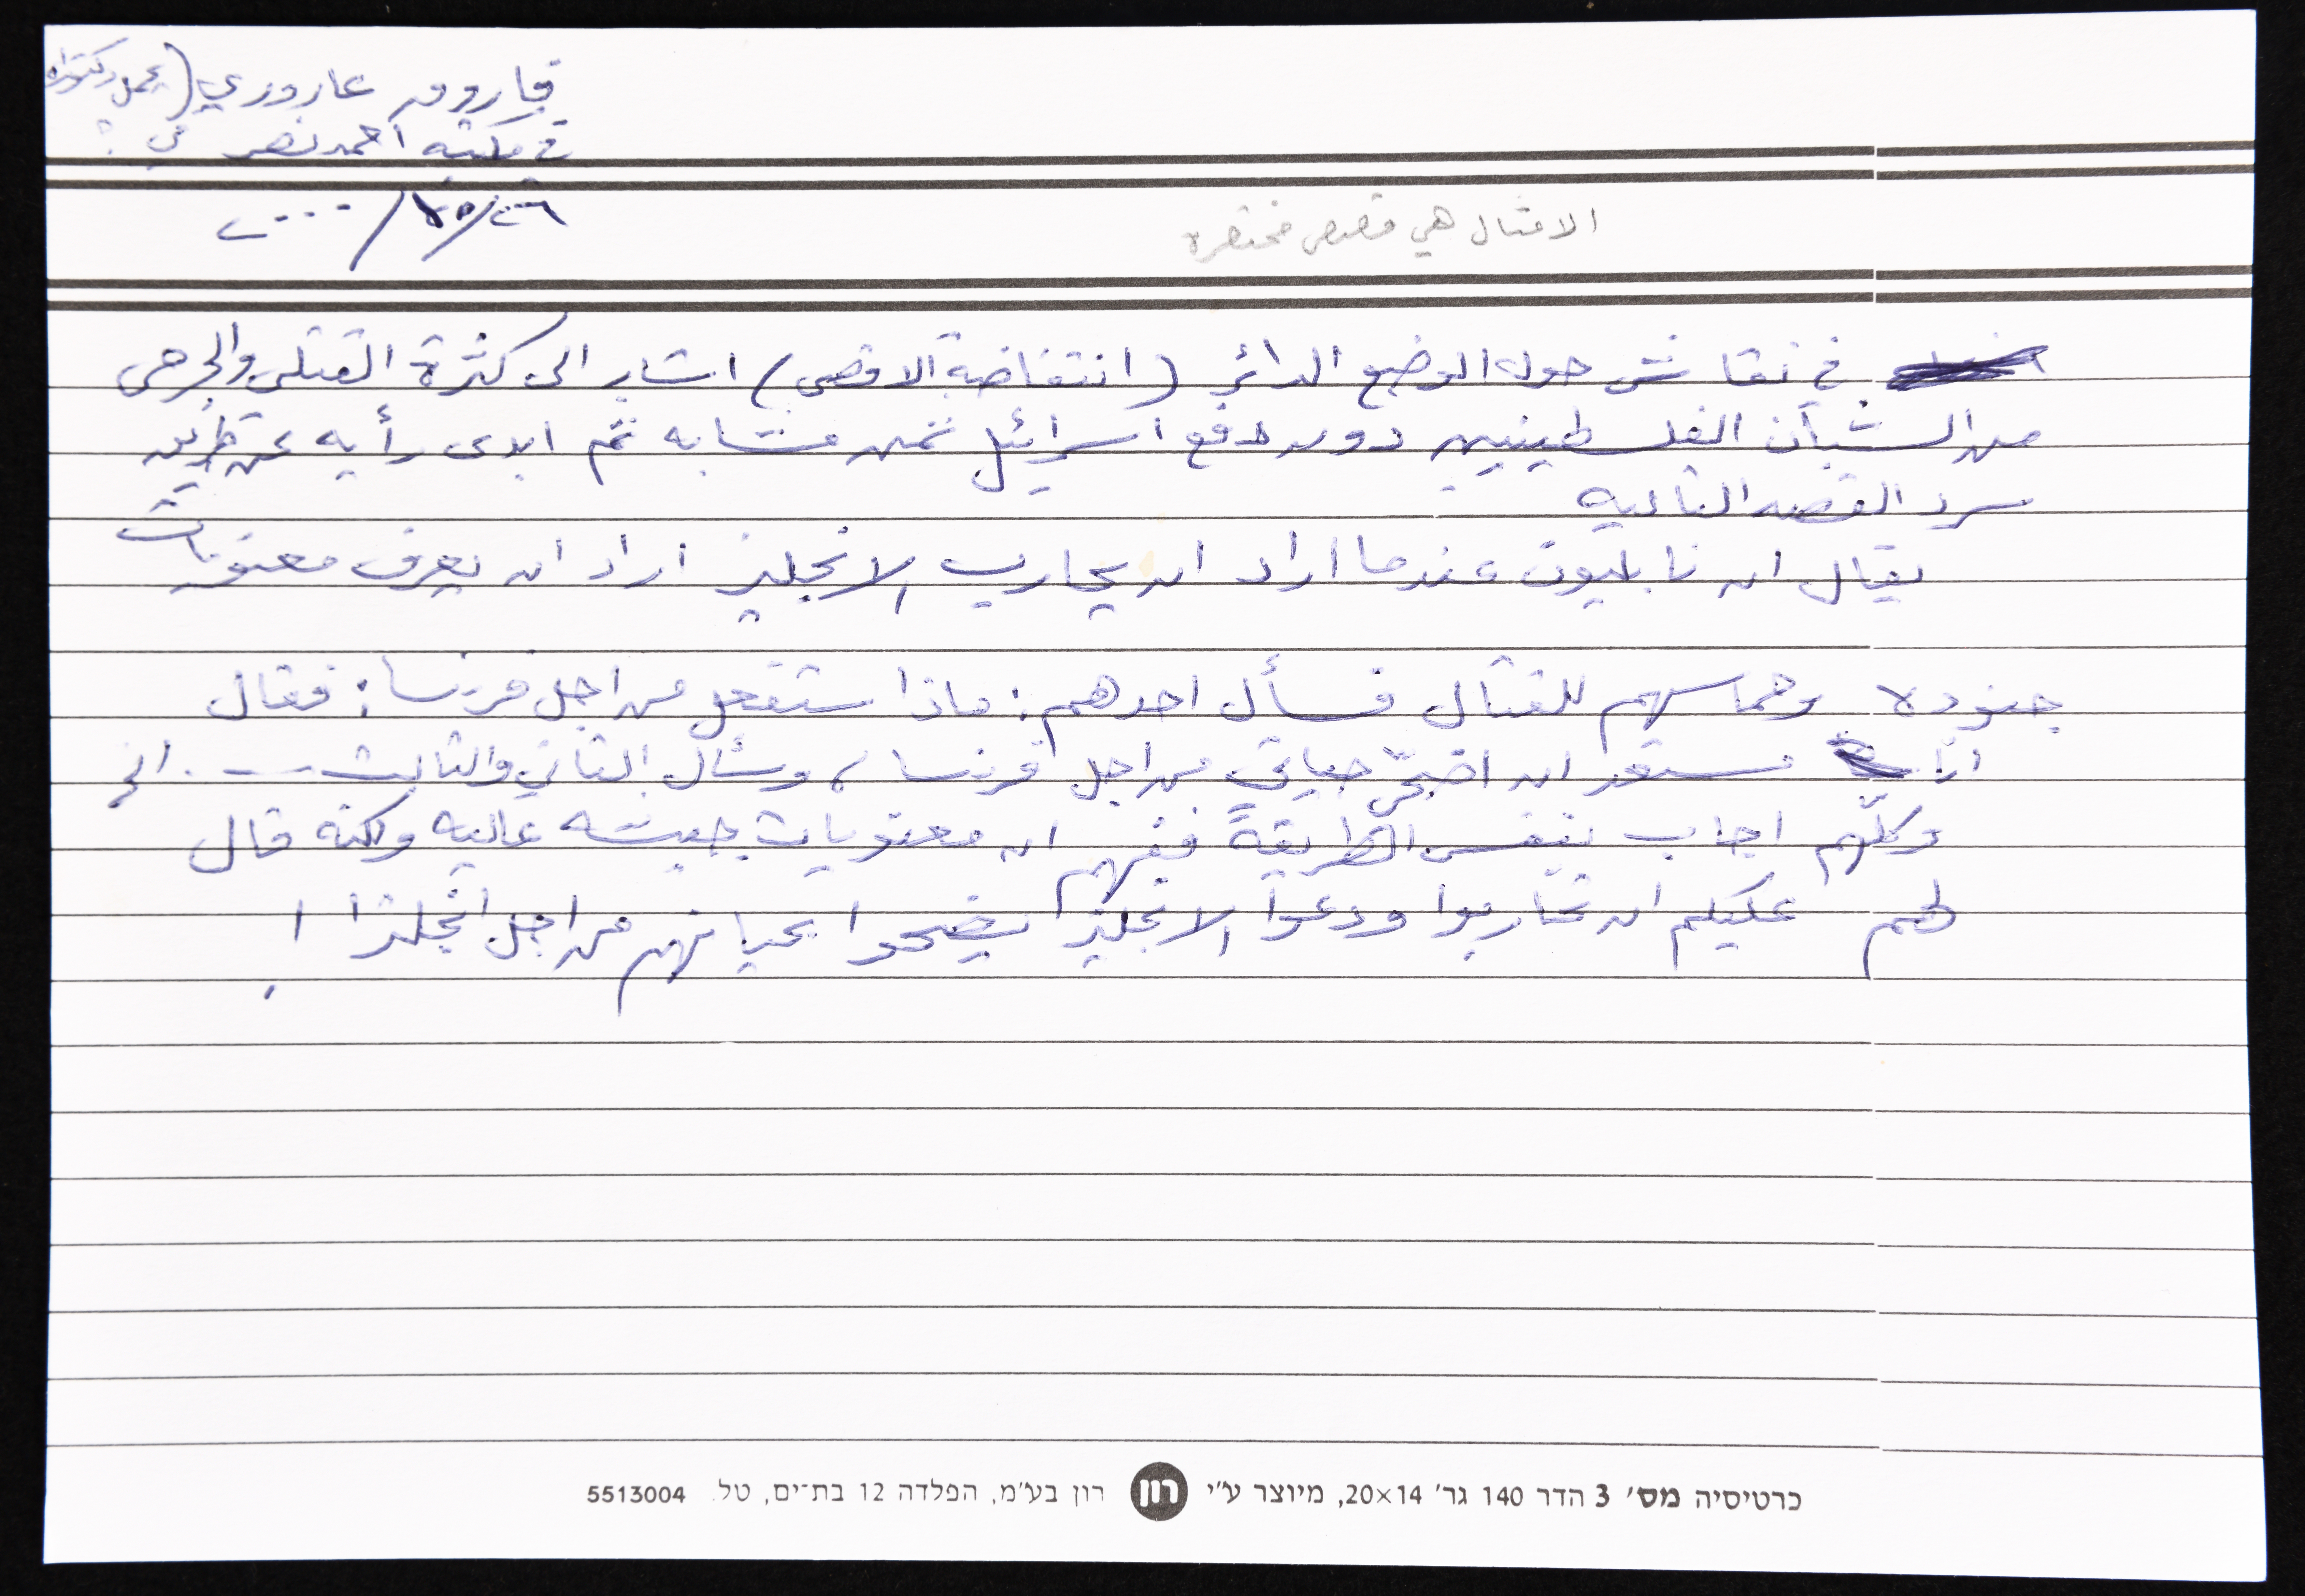 فاروق عاروري (يحمل دكتوراه
في مكتبه احمد نصر في
٢٠٠٠/
الامثال هي قصص مختصرة
في نقاش حول الوضع الدائر (انتفاضة الاقصى) اشار الى كثرة القتلى والجرحى
من الشبان الفلسطينيين دون دفع اسرائيل ثمن مشابه ثم ابدى رأيه عن طريق
سرد القصه التاليه
يقال ان نابليون عندما اراد ان يحارب الانجليز اراد ان يعرف معنويات
جنوده وحماسهم للقتال فسأل احدهم: ماذا ستفعل من اجل فرنسا: فقال
انا مستعد ان اضحّي حياتي من اجل فرنسا، وسأل الثاني والثالث ... الخ
وكلّهم اجاب بنفس الطريقة ففهم ان معنويات جيشه عاليه ولكنه قال
لهم عليكم ان تحاربوا ودعوا الانجليز يضحوا بحياتهم من اجل انجلترا !
כרטיסיה מס׳ 3 הדר 140 גר׳ 20×14, מיוצר ע״י רון רון בע״מ, הפלדה 12 בת־ים, טל. 5513004